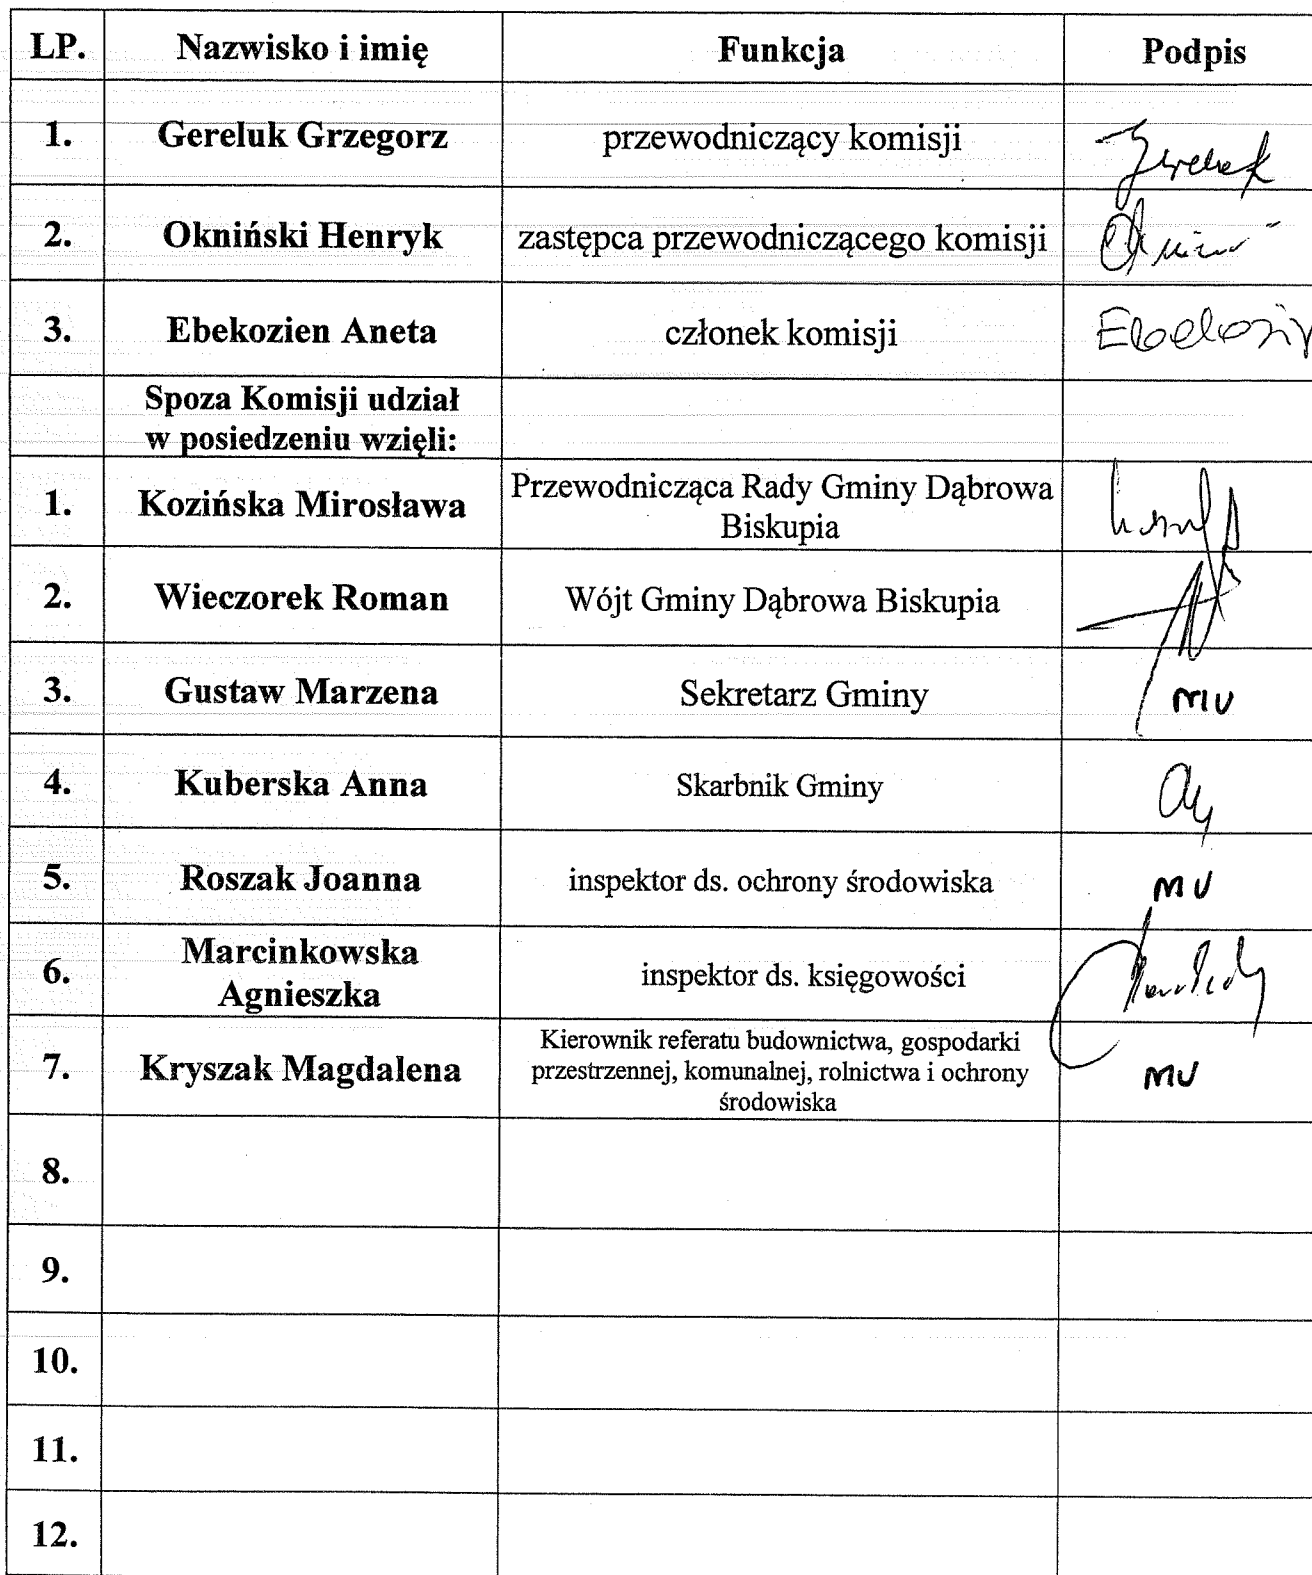 LP. Nazwisko i imię Funkcja Podpis
1. Gereluk Grzegorz przewodniczący komisji
2. Okniński Henryk zastępca przewodniczącego komisji
3. Ebekozien Aneta członek komisji
Spoza Komisji udział
w posiedzeniu wzięli:
1. Kozińska Mirosława Przewodnicząca Rady Gminy Dąbrowa
Biskupia
2. Wieczorek Roman Wójt Gminy Dąbrowa Biskupia
3. Gustaw Marzena Sekretarz Gminy MU
4. Kuberska Anna Skarbnik Gminy
5. Roszak Joanna inspektor ds. ochrony środowiska MU
6. Marcinkowska
Agnieszka inspektor ds. księgowości
7. Kryszak Magdalena Kierownik referatu budownictwa, gospodarki
przestrzennej, komunalnej, rolnictwa i ochrony
środowiska MU
8.
9.
10.
11.
12.